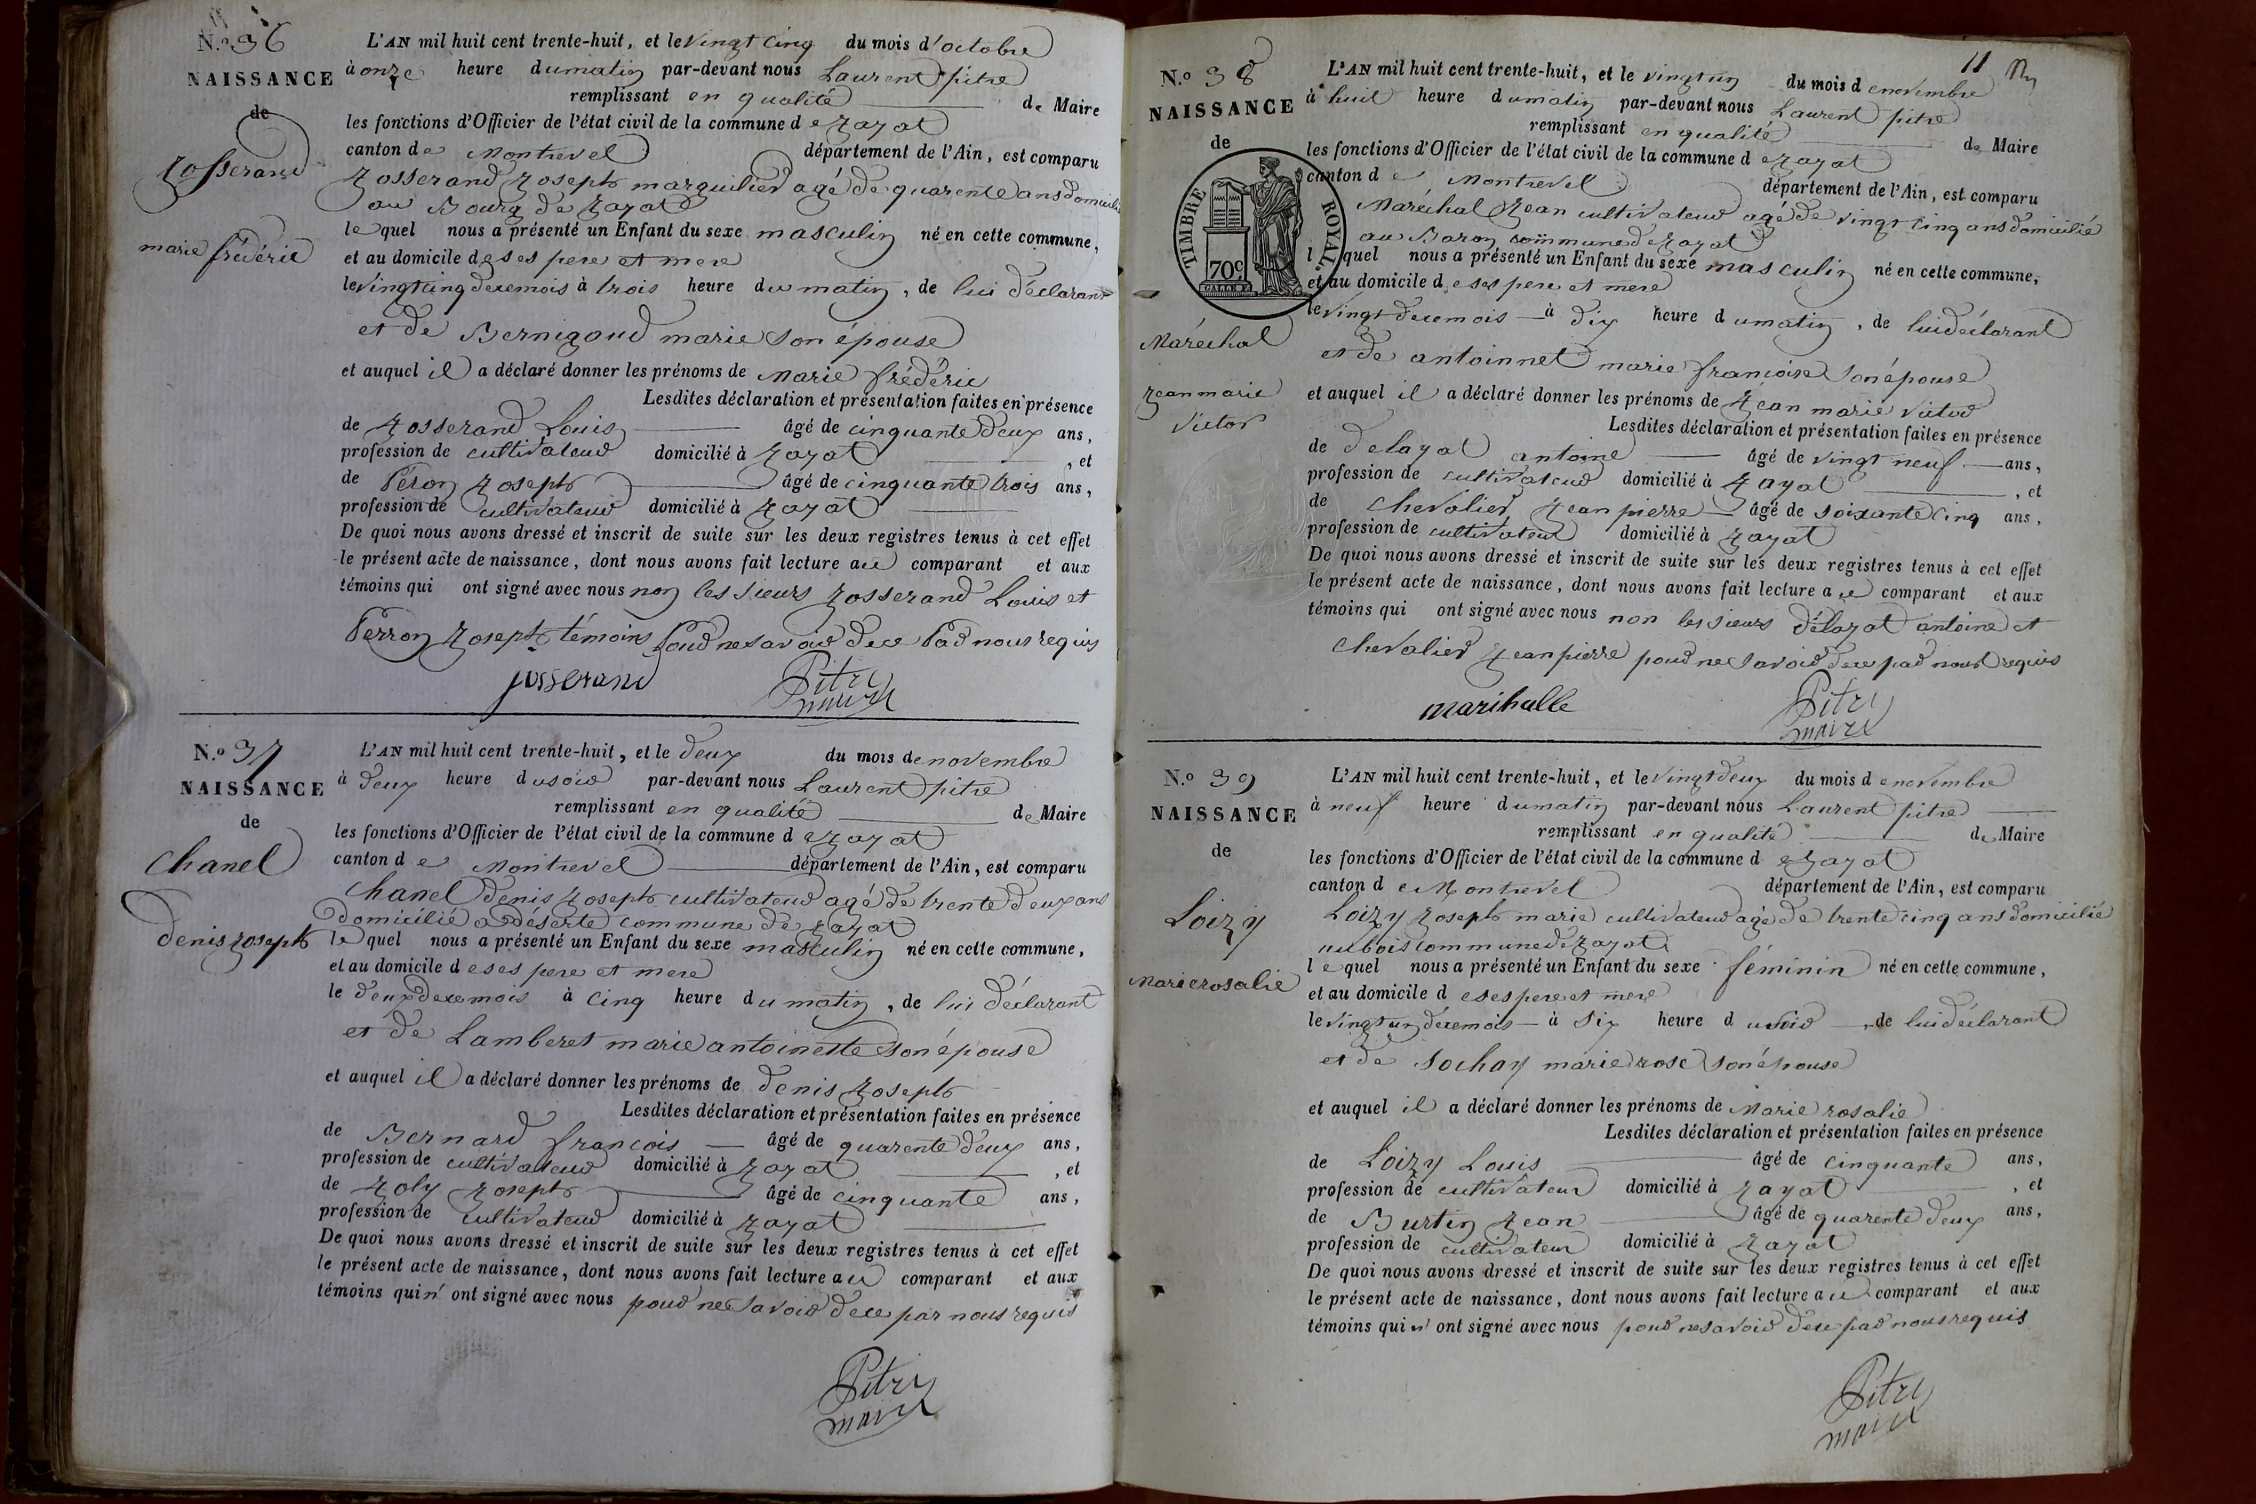 N.o 36
NAISSANCE
de
Josserand
marie frédéric
L'AN mil huit cent trente-huit, et le vingt cinq du mois d'octobre
à onze heure du matin par-devant nous Laurent pitre
remplissant en qualité de Maire
les fonctions d'Officier de l'état civil de la commune de Jayat
canton de Montrevel département de l'Ain, est comparu
Josserand Joseph marguilier agé de quarente ans domicilié
au Bourg de Jayat
lequel nous a présenté un Enfant du sexe masculin né en cette commune,
et au domicile de ses pere et mere
le vingt cinq de ce mois à trois heure du matin, de lui déclarant
et de Bernigaud marie son épouse
et auquel il a déclaré donner les prénoms de Marie frédéric
Lesdites déclaration et présentation faites en présence
de Josserand Louis âgé de cinquante deux ans,
profession de cultivateur domicilié à Jayat , et
de Péron Joseph âgé de cinquante trois ans,
profession de cultivateur domicilié à Jayat
De quoi nous avons dressé et inscrit de suite sur les deux registres tenus à cet effet
le présent acte de naissance, dont nous avons fait lecture au comparant et aux
témoins qui ont signé avec nous non les sieurs Josserand Louis et
Perron Joseph témoins pour ne savoir de ce par nous requis
josserand Pitre
maire
N.o 37
NAISSANCE
de
Chanel
denis Joseph
L'AN mil huit cent trente-huit, et le deux du mois de novembre
à deux heure du soir par-devant nous Laurent pitre
remplissant en qualité de Maire
les fonctions d'Officier de l'état civil de la commune de Jayat
canton de Montrevel département de l'Ain, est comparu
Chanel denis Joseph cultivateur agé de trente deux ans
domicilié a déserte commune de Jayat
lequel nous a présenté un Enfant du sexe masculin né en cette commune,
et au domicile de ses pere et mere
le deux de ce mois à cinq heure du matin, de lui déclarant
et de Lamberet marie antoinette son épouse
et auquel il a déclaré donner les prénoms de denis Joseph
Lesdites déclaration et présentation faites en présence
de Bernard francois âgé de quarente deux ans,
profession de cultivateur domicilié à Jayat , et
de Joly Joseph âgé de cinquante ans,
profession de cultivateur domicilié à Jayat
De quoi nous avons dressé et inscrit de suite sur les deux registres tenus à cet effet
le présent acte de naissance, dont nous avons fait lecture au comparant et aux
témoins qui n' ont signé avec nous pour ne savoir de ce par nous requis
Pitre
maire
11
N.o 38
NAISSANCE
de
TIMBRE ROYAL.
70c
Maréchal
Jean marie
Victor
L'AN mil huit cent trente-huit, et le vingt un du mois de novembre
à huit heure du matin par-devant nous Laurent pitre
remplissant en qualité de Maire
les fonctions d'Officier de l'état civil de la commune de Jayat
canton de Montrevel département de l'Ain, est comparu
Maréchal Jean cultivateur agé de vingt cinq ans domicilié
au Baron commune de Jayat
l quel nous a présenté un Enfant du sexe masculin né en cette commune,
et au domicile de ses pere et mere
le vingt de ce mois à dix heure du matin, de lui déclarant
et de antoinnet marie francoise son épouse
et auquel il a déclaré donner les prénoms de Jean marie victor
Lesdites déclaration et présentation faites en présence
de delayat antoine âgé de vingt neuf ans,
profession de cultivateur domicilié à Jayat , et
de Chevalier Jean pierre âgé de soixante cinq ans,
profession de cultivateur domicilié à Jayat
De quoi nous avons dressé et inscrit de suite sur les deux registres tenus à cet effet
le présent acte de naissance, dont nous avons fait lecture au comparant et aux
témoins qui ont signé avec nous non les sieurs délayat antoine et
Chevalier Jean pierre pour ne savoir de ce par nous requis
marihalle Pitre
maire
N.o 39
NAISSANCE
de
Loizy
Marie rosalie
L'AN mil huit cent trente-huit, et le vingt deux du mois de novembre
à neuf heure du matin par-devant nous Laurent pitre
remplissant en qualité de Maire
les fonctions d'Officier de l'état civil de la commune de Jayat
canton de Montrevel département de l'Ain, est comparu
Loizy Joseph marie cultivateur agé de trente cinq ans domicilié
au bois commune de Jayat
lequel nous a présenté un Enfant du sexe féminin né en cette commune,
et au domicile de ses pere et mere
le vingt un de ce mois à six heure du soir, de lui déclarant
et de Sochay marie rose son épouse
et auquel il a déclaré donner les prénoms de Marie rosalie
Lesdites déclaration et présentation faites en présence
de Loizy Louis âgé de cinquante ans,
profession de cultivateur domicilié à Jayat , et
de Burtin Jean âgé de quarente deux ans,
profession de cultivateur domicilié à Jayat
De quoi nous avons dressé et inscrit de suite sur les deux registres tenus à cet effet
le présent acte de naissance, dont nous avons fait lecture au comparant et aux
témoins qui n' ont signé avec nous pour ne savoir de ce par nous requis
Pitre
maire